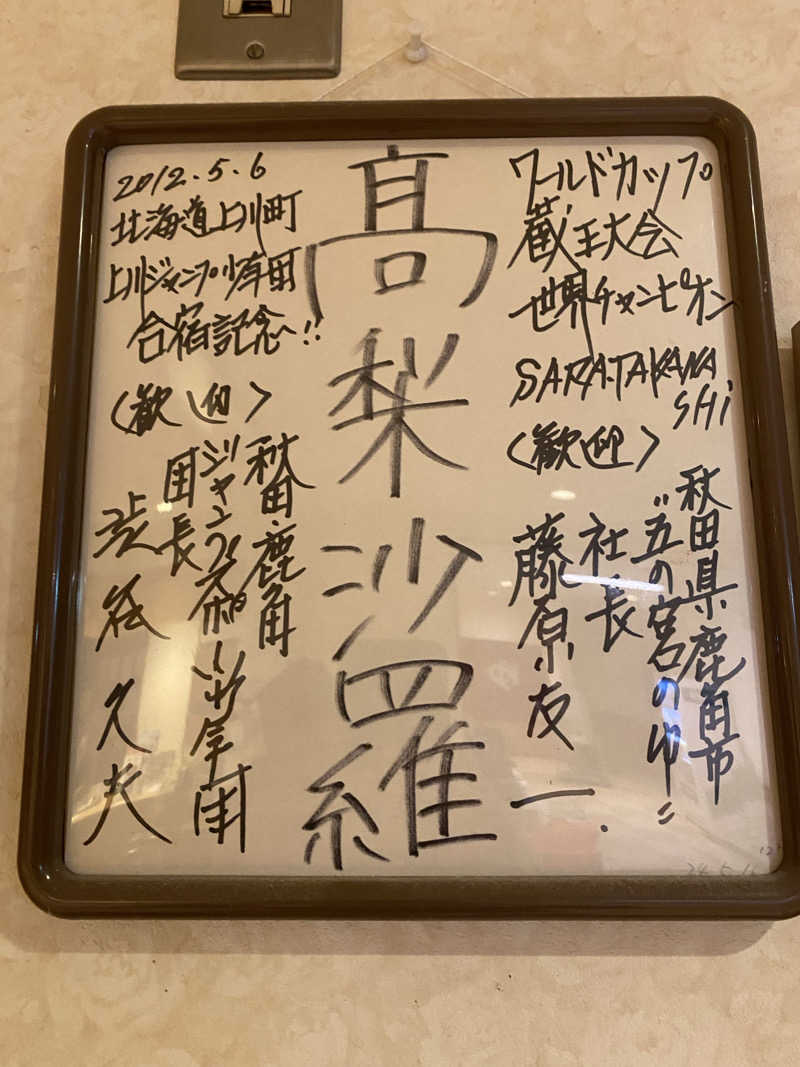 ワールドカップ
蔵王大会
世界チャンピオン
SARA.TAKANA
SHi
〈歓迎〉
秋田県鹿角市
"五の宮のゆ"
社長
藤原友一.
高梨沙羅
2012.5.6
北海道上川町
上川ジャンプ少年団
合宿記念!!
〈歓迎〉
秋田・鹿角
ジャンプスポーツ少年団
団長
久夫